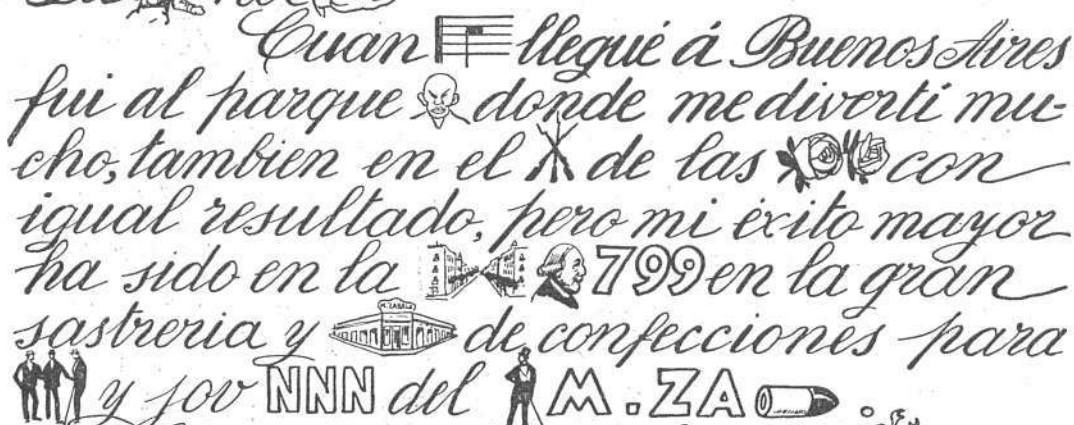 Cuan llegué á Buenos Aires
fui al parque donde me divertí mu-
cho, tambien en el de las con
igual resultado, pero mi éxito mayor
ha sido en la 799 en la gran
sastreria y M. ZABALA de confecciones para
y jov NNN del M. ZA